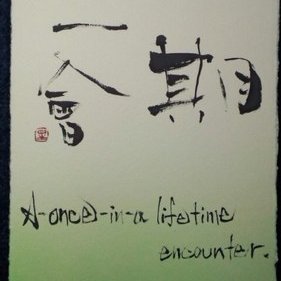 期
一會
A-once-in-a lifetime
encounter.